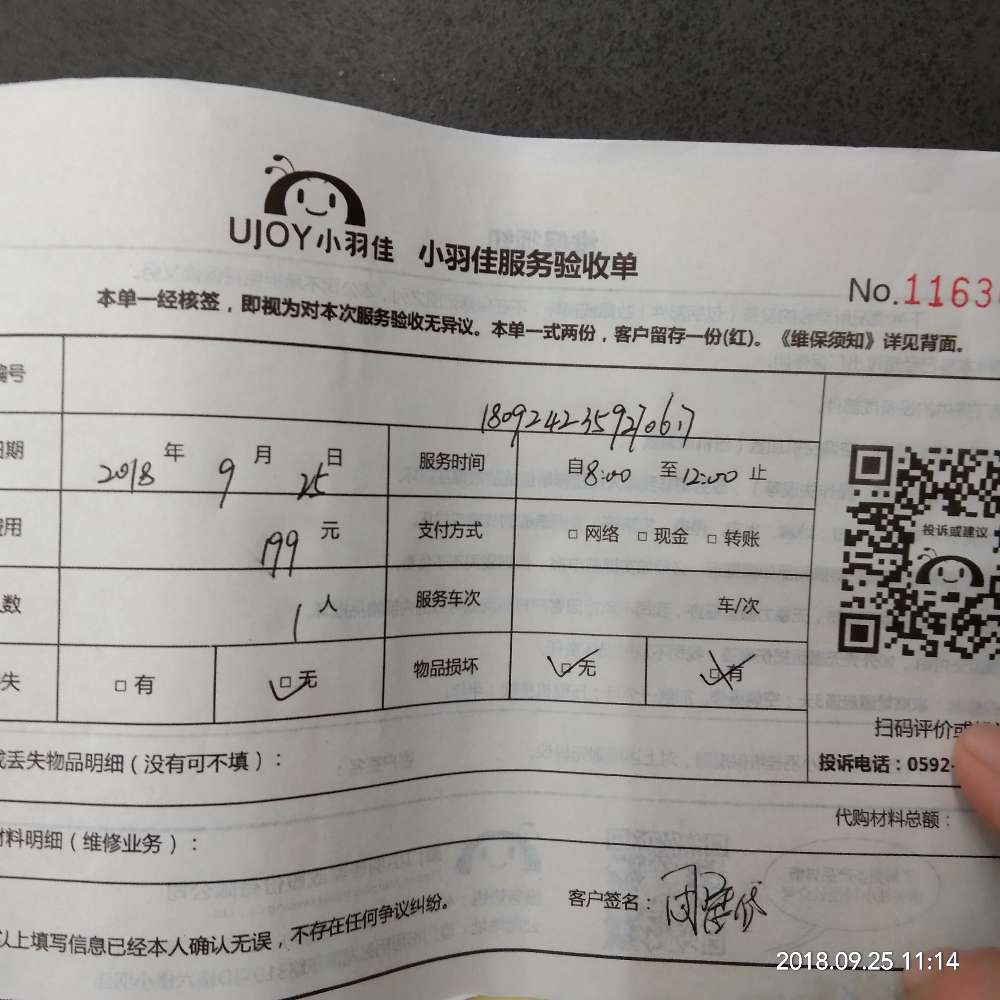 UJOY小羽佳 小羽佳服务验收单
No.1163
本单一经核签，即视为对本次服务验收无异议。本单一式两份，客户留存一份(红)。《维保须知》详见背面。
编号 180924235927067
日期 2018 年 9 月 25 日 服务时间 自8:00 至12:00 止
费用 199 元 支付方式 □ 网络 □ 现金 □ 转账
人数 1 人 服务车次 车/次
失 □ 有 □ 无 物品损坏 □ 无 □ 有
投诉或建议
扫码评价或
投诉电话：0592-
或丢失物品明细（没有可不填）：
代购材料总额：
材料明细（维修业务）：
客户签名：
以上填写信息已经本人确认无误，不存在任何争议纠纷。
2018.09.25 11:14